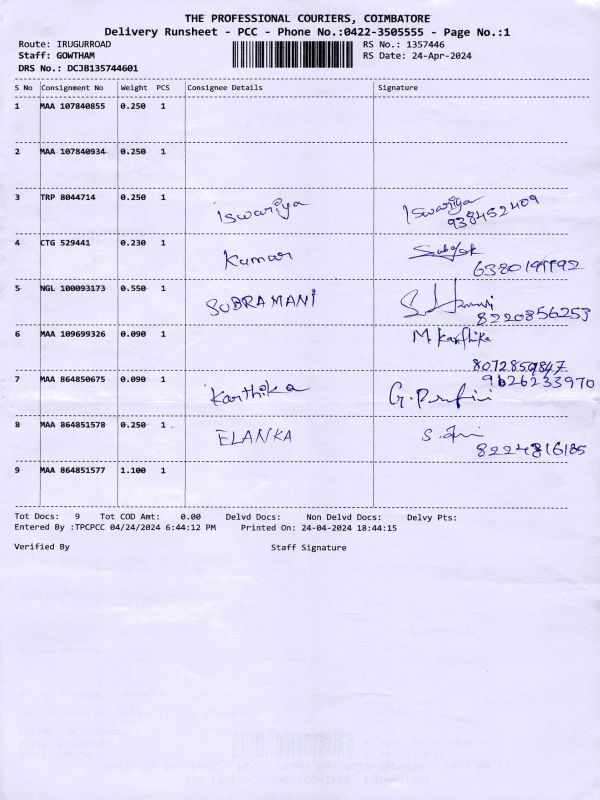 THE PROFESSIONAL COURIERS, COIMBATORE
Delivery Runsheet - PCC - Phone No.:0422-3505555 - Page No.:1
Route: IRUGURROAD RS No.: 1357446
Staff: GOWTHAM RS Date: 24-Apr-2024
DRS No.: DCJB135744601
S No Consignment No Weight PCS Consignee Details Signature
1 MAA 107840855 0.250 1
2 MAA 107840934 0.250 1
3 TRP 8044714 0.250 1 Iswariya Iswariya
938452409
4 CTG 529441 0.230 1 Kumar
6380199992
5 NGL 100093173 0.550 1 SUBRAMANI
8220856253
6 MAA 109699326 0.090 1 M Karthika
8072859847
7 MAA 864850675 0.090 1 Karthika G.
9626233970
8 MAA 864851578 0.250 1 ELANKA S.
8224816185
9 MAA 864851577 1.100 1
Tot Docs: 9 Tot COD Amt: 0.00 Delvd Docs: Non Delvd Docs: Delvy Pts:
Entered By :TPCPCC 04/24/2024 6:44:12 PM Printed On: 24-04-2024 18:44:15
Verified By Staff Signature